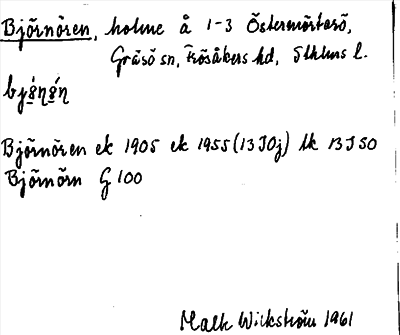 Björnören, holme å 1-3 Östermörtarö,
Gräsö sn, Frösåkers hd, Sthlms l.
bjǿṇǿṇ
Björnören ek 1905 ek 1955 (13 I 0j) lk 13 I SO
Björnörn G 100
Malk Wickström 1961